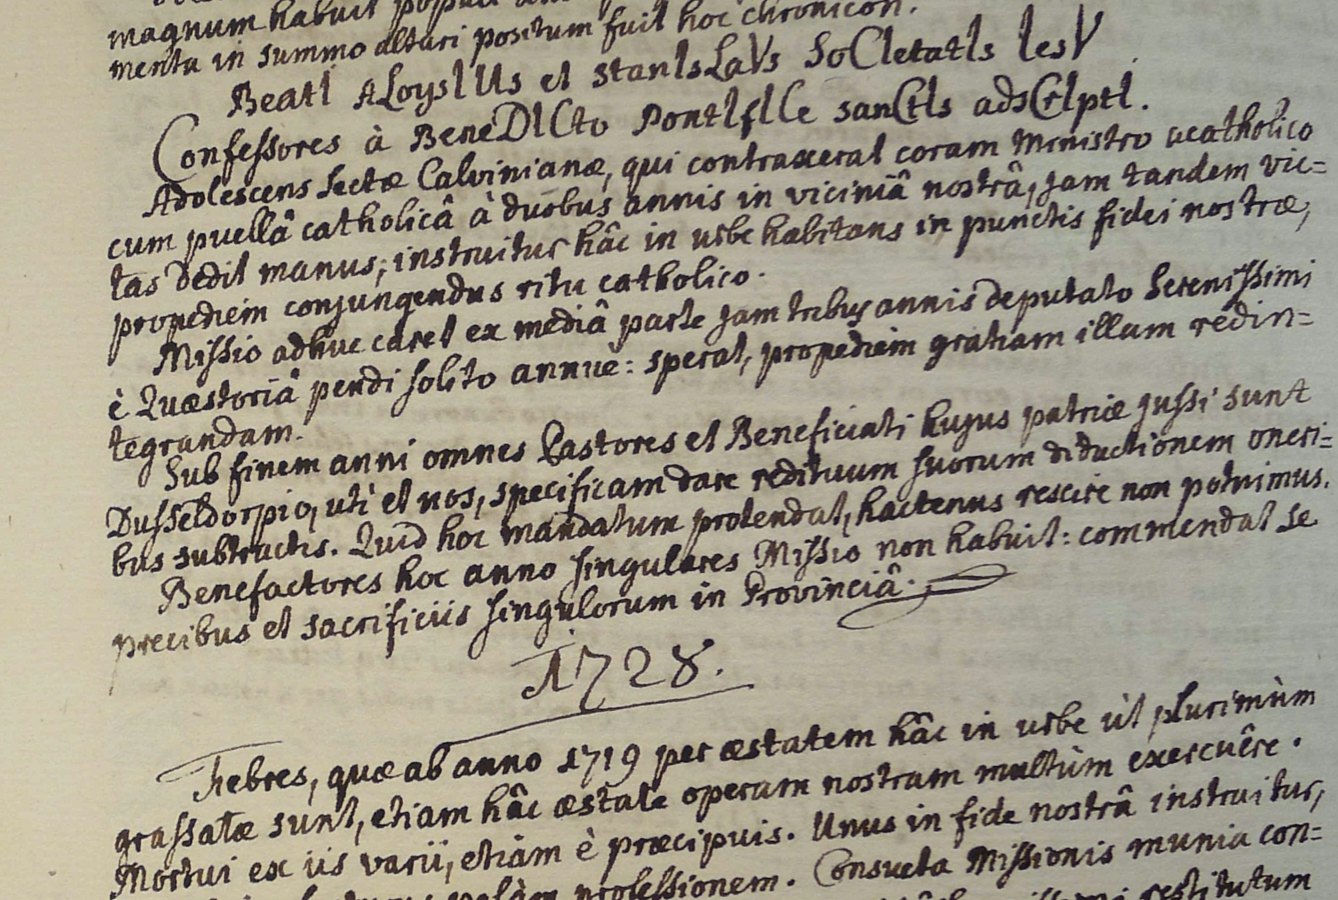 magnum habuit
menta in summo altari positum fuit hoc chronicon.
BeatI ALoysIUs et StanIsLaVs SoCIetatIs IesV
Confessores à BeneDICto PontIfICe sanCtIs adsCrIptI.
Adolescens sectæ Calvinianæ, qui contraxerat coram Ministro acatholico
cum puellâ catholicâ à duobus annis in viciniâ nostrâ, jam tandem vic=
tas dedit manus, instruitur hâc in urbe habitans in punctis fidei nostræ,
propediem conjungendus ritu catholico.
Missio adhuc caret ex mediâ parte jam tribus annis deputato Serenissimi
è Quæstoriâ pendi solito annuè: sperat, propediem gratiam illam redin=
tegrandam.
Sub finem anni omnes Pastores et Beneficiati hujus patriæ jussi sunt
Dusseldorpio, uti et nos, specificam dare redituum suorum diductionem oneri=
bus subtractis. Quid hoc mandatum protendat, hactenus rescire non potuimus.
Benefactores hoc anno singulares Missio non habuit: commendat se
precibus et sacrificiis singulorum in Provinciâ.
1728.
Febres, quæ ab anno 1719 per æstatem hâc in urbe ùt plurimùm
grassatæ sunt, etiam hâc æstate operam nostram multùm exercuêre.
Mortui ex iis varii, etiam è præcipuis. Unus in fide nostrâ instruitur,
palàm professionem. Consueta Missionis munia con=
restitutum